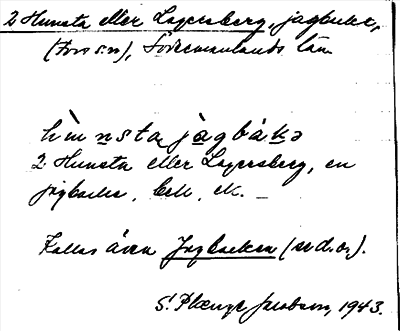 2 Hunsta eller Lagersberg, jagbacke,
(Fors sn), Södermanlands län.
hùnsta jàgbákə
2 Hunsta eller Lagersberg, en
jagbacke, bell. ek. —
Kallas även Jagbacken (se d.o.).
S. Plænge Jacobson, 1943.